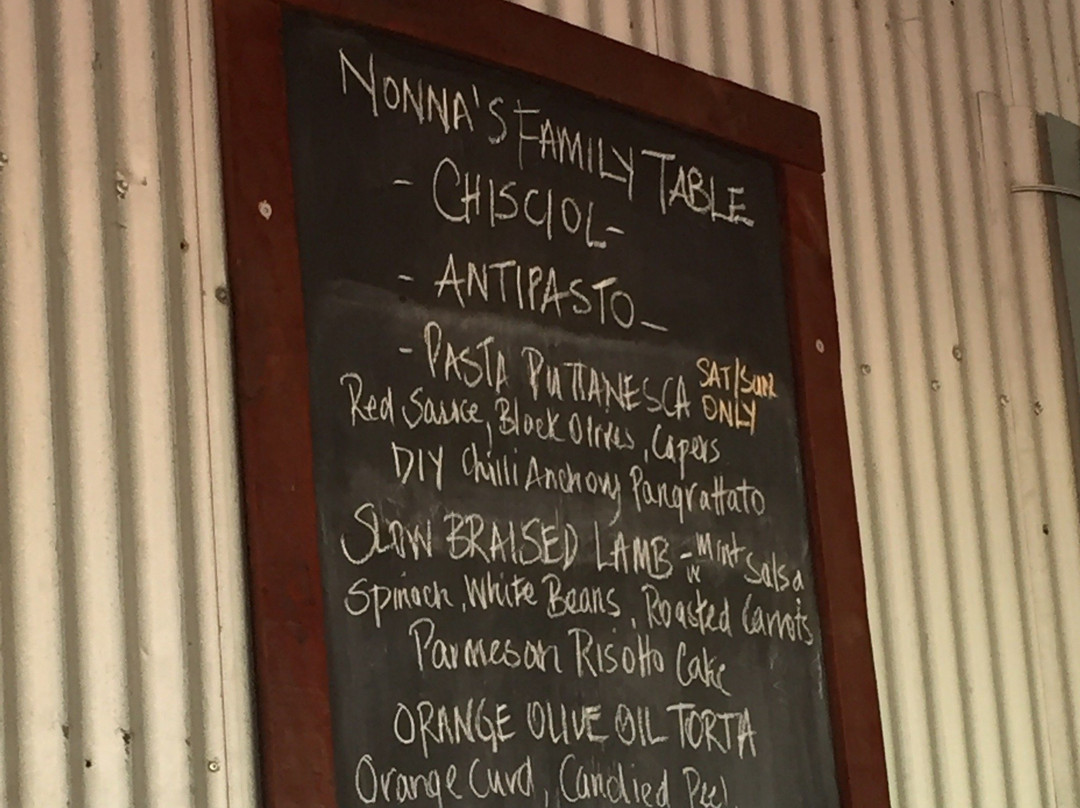 NONNA'S FAMILY TABLE
- CHISCIOL-
- ANTIPASTO -
- PASTA PUTTANESCA SAT/SUN ONLY
Red Sauce, Black Olives, Capers
DIY Chilli Anchovy Pangrattato
SLOW BRAISED LAMB - w Mint Salsa
Spinach, White Beans, Roasted Carrots
Parmesan Risotto Cake
ORANGE OLIVE OIL TORTA
Orange Curd, Candied Peel